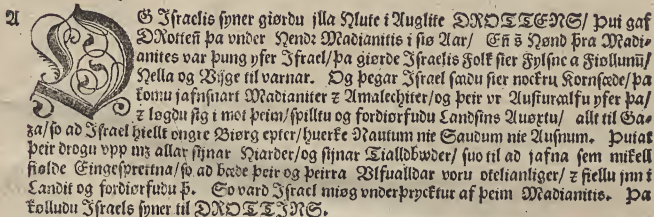 A OG Jſraelis ſyner giørdu jlla Hlute i Auglite DROTTENS/ Þui gaf
DRotteñ þa vnder Hendr Madianitis i ſiø Aar/ Eñ s̄ Hønd þra Madi-
anites var þung yfer Jſrael/þa giørde Jſraelis Folk ſier Fylſne a Fiollunū/
Hella og Vijge til varnar. Og þegar Jſrael ſædu ſier nockru Kornſæde/þa
komu jafnſnart Madianiter z Amalechiter/og þeir vr Auſturælfu yfer þa/
z løgdu ſig i mot þeim/ſpilltu og fordiorfudu Landſins Auøxtu/ allt til Ga-
za/ſo ad Jſrael hiellt øngre Biørg epter/huerke Nautum nie Saudum nie Auſnum. Þuiat
þeir drogu vpp mz allar ſijnar Hiarder/og ſijnar Tialldbwder/ſuo til ad jafna ſem mikell
fiølde Eingeſpreitna/ſo ad bæde þeir og þeirra Vlfualldar voru oteliānliger/ z fiellu jnn i
Landit og fordiorfudu þ. So vard Jſrael miøg vnderþrycktur af þeim Madianitis. Þa
kølludu Jſraels ſyner til DROTTINS.